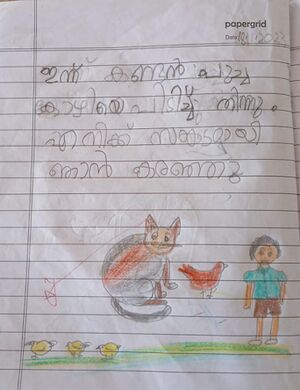 papergrid
Date:
ഇന്ന് കണ്ടൻ പൂച്ച
കോഴിയെ പിടിച്ച് തിന്നു.
എനിക്ക് സങ്കടമായി
ഞാൻ കരഞ്ഞു